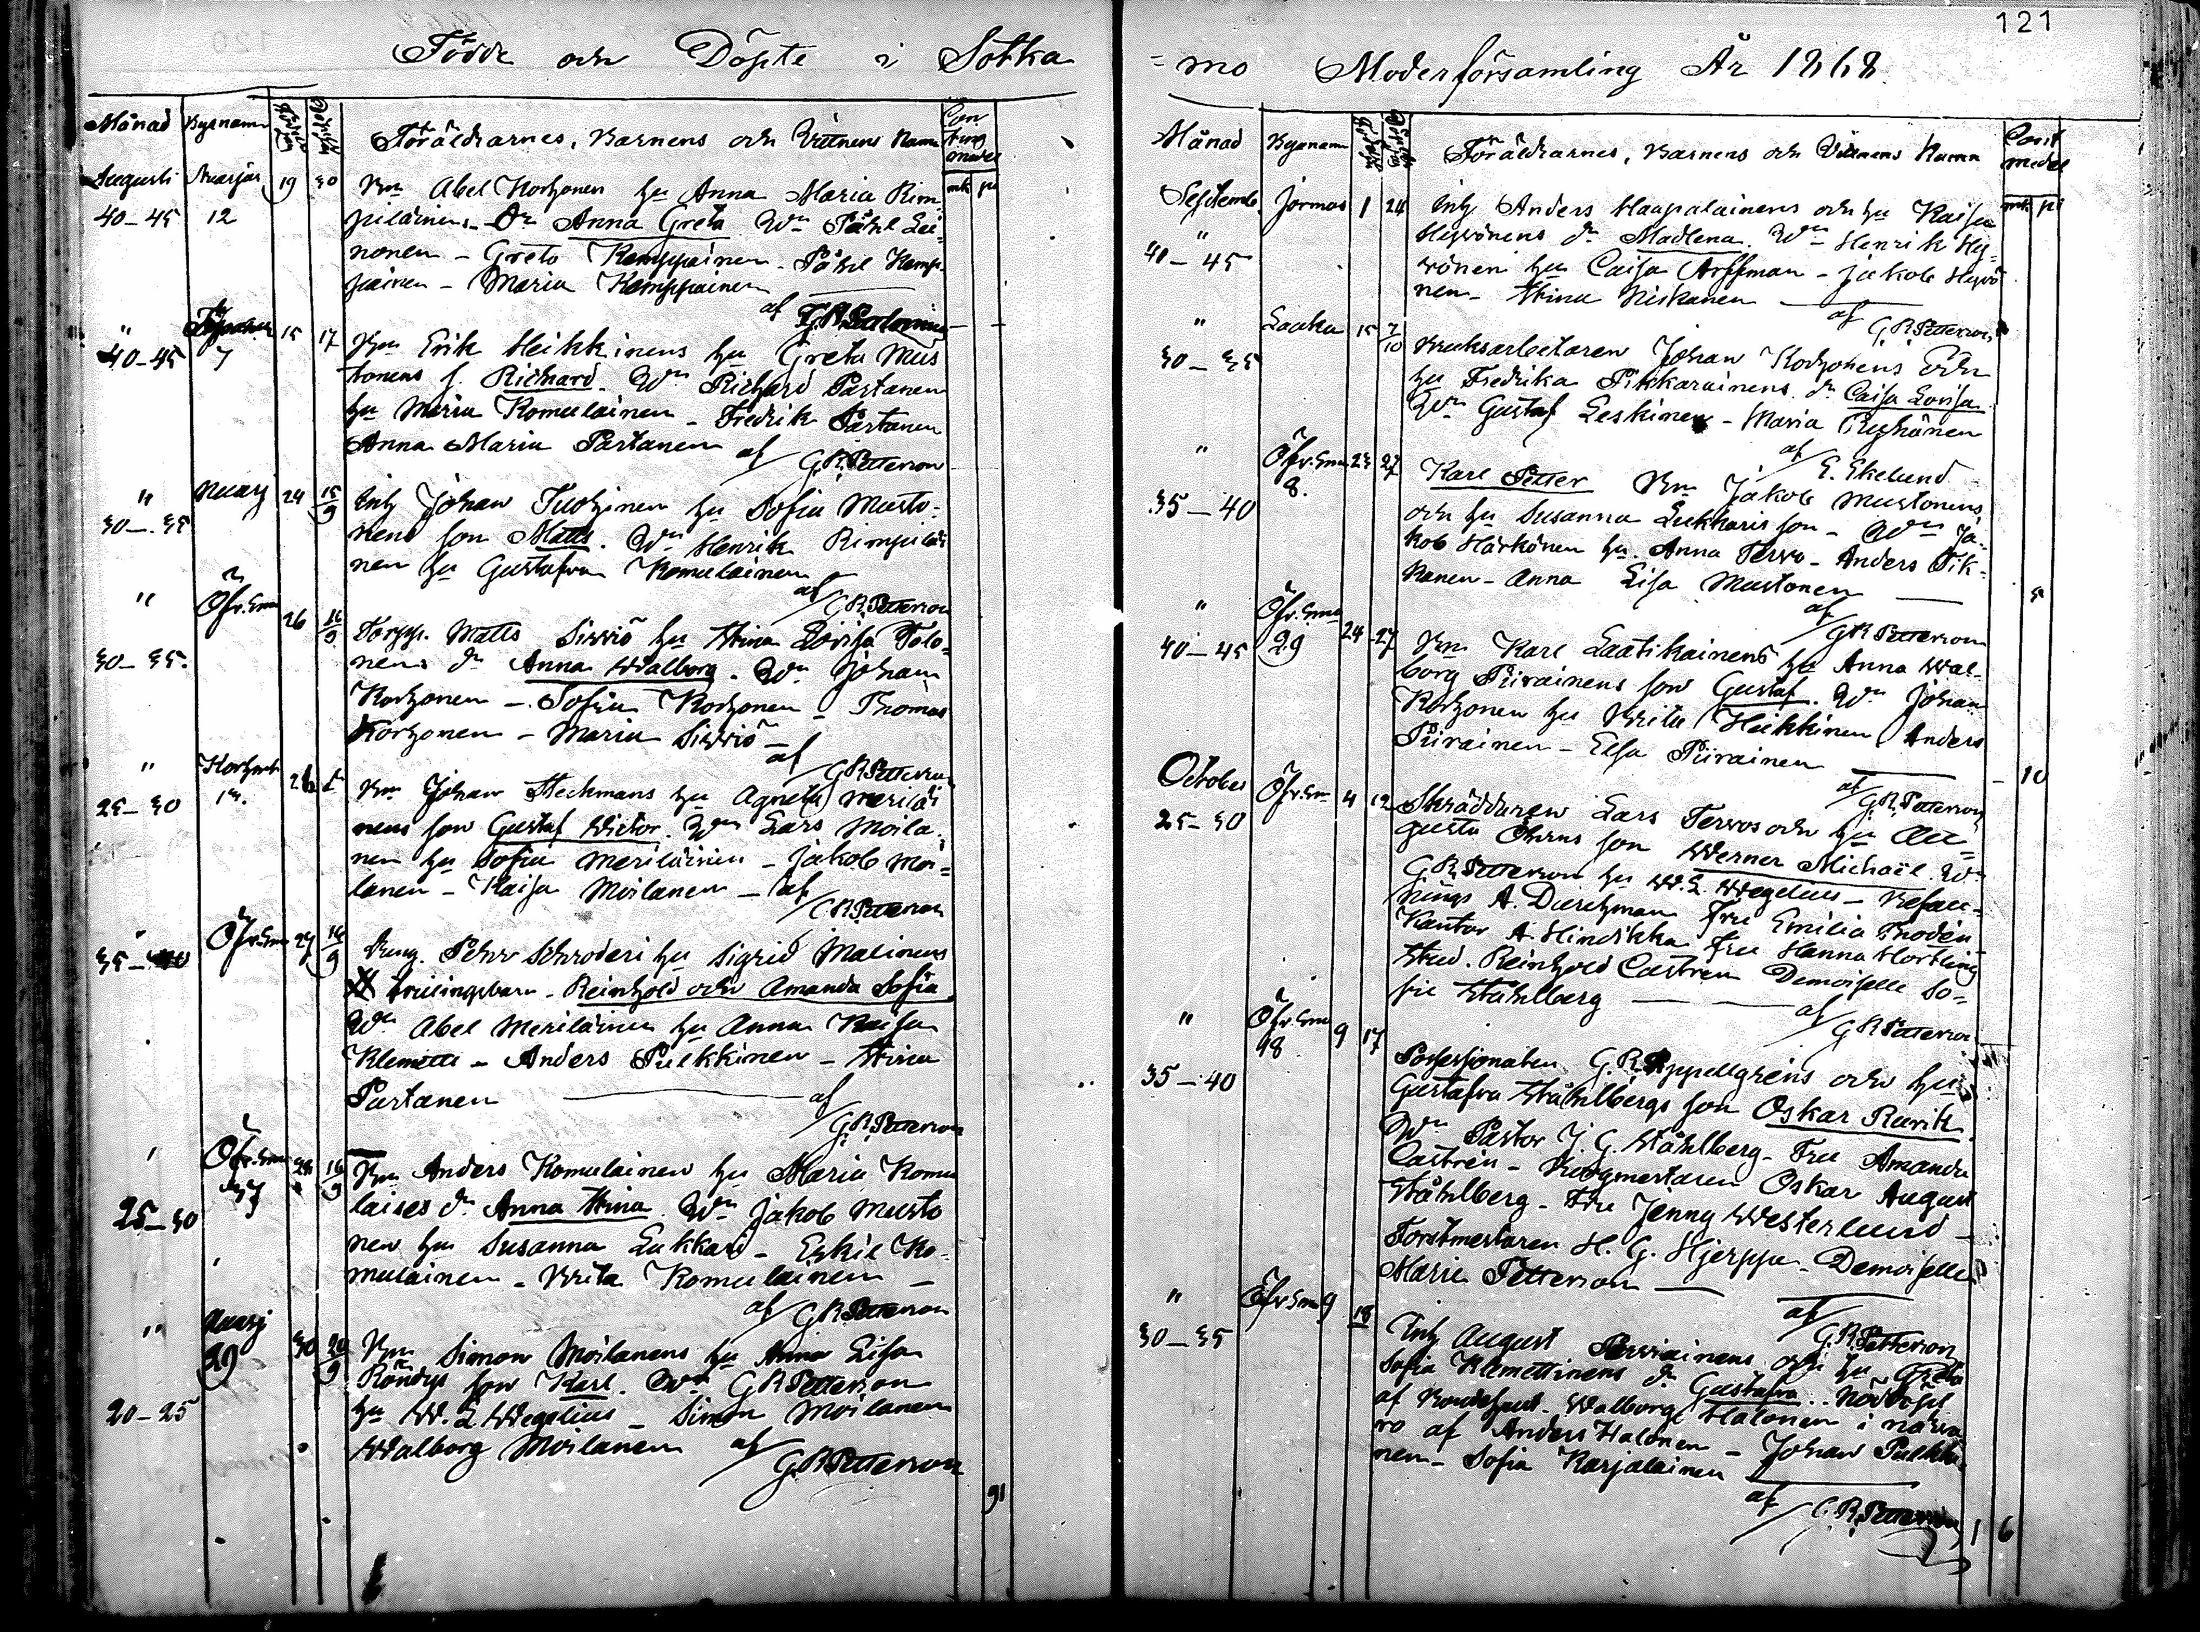 121
Födde och Döpte i Sotka
Månad Bynamn
Föräldrarnes, Barnens och Vittnens Namn
Augusti 19 30
40-45 12
Bm Abel Korhonen hu Anna Maria Rim-
piläinens Dr Anna Greta Wn Påhl Lei-
nonen - Greta Kemppainen - Påhl Kemp-
painen - Maria Kemppainen
af
" 15 17
40-45 7
Bm Erik Heikkinens hu Greta Mus
tonens s. Richard. Wn Richard Partanen
hu Maria Komulainen - Fredrik Partanen
Anna Maria Partanen af G.R.Petterson
" 24 15/9
30-35
Inh Johan Tuhkinen hu Sofia Musto-
nens son Matts. Wn Henrik Rimpiläi
nen hu Gustafva Komulainen
af G.R.Petterson
" Öfv.Sm 26 16/9
30-35.
Torpp. Matts Sirviö hu Stina Lovisa Tolo-
nens dr Anna Walborg. Wn Johan
Korhonen - Sofia Korhonen - Thomas
Korhonen - Maria Sirviö -
af G.R.Petterson
"
25-30
Bm Johan Heckmans hu Agneta Meriläi
nens son Gustaf Victor. Wn Lars Moila-
nen hu Sofia Meriläinen - Jakob Moi-
lanen - Kaisa Moilanen - af
G.R.Petterson
Öfv.Sm 27 16/9
Pehr Schroderi hu Sigrid Malinens
Reinhold och Amanda Sofia
Wn Abel Meriläinen hu Anna Kaisa
Klemetti - Anders Pulkkinen - Stina
Partanen
af
G.R.Petterson
Öfv.Sm 28 16/9
37
25-30
Bm Anders Komulainen hu Maria Komu
laises dr Anna Stina. Wn Jakob Musto
nen hu Susanna Lukkari - Eskil Ko-
mulainen - Brita Komulainen -
af G.R.Petterson
" 30
29
20-25
Bm Simon Moilanens hu Anna Lisa
Röndys son Karl. Wn G.R.Petterson
hu W. L. Wegelius - Simon Moilanen
Walborg Moilanen af
G.R.Petterson
91
=mo Moderförsamling År 1868.
Månad Bynamn
Föräldrarnes, Barnens och Vittnens Namn
Septemb. Jormas 1 24
"
40-45
Inh Anders Haapalainens och hu Kaisa
Hyvönens dr Madlena. Wn Henrik Hy-
vönen hu Caisa Arffman - Jakob Hyvö
nen - Stina Niskanen
af G.R.Petterson
" Laaka 15 7/10
30-35
Bruksarbetaren Johan Korhonens och
hu Fredrika Pikkarainens dr Caisa Lovisa.
Wn Gustaf Leskinen - Maria Ryhänen
af E. Ekelund
" Öfv.Sm 23 27
8.
35-40
Karl Petter Bm Jakob Mustonens
och hu Susanna Lukkaris son - Wn Ja-
kob Härkönen hu Anna Tervo - Anders Tik-
kanen - Anna Lisa Mustonen
af
G.R.Petterson
" Öfv.Sm 24 27
40-45 29
Bm Karl Laatikainens hu Anna Wal-
borg Piirainens son Gustaf. Wn Johan
Korhonen hu Brita Heikkinen Anders
Piirainen - Elsa Piirainen
10
af G.R.Petterson
October Öfv.Sm 4 12
25-30
Skräddaren Lars Tervos och hu Au-
gusta Öhrns son Werner Michaël. Wn
G.R.Petterson hu W.L. Wegelius - Befall-
nings A. Dierckman Fru Emilia Thodén
Kantor A. Hindikka Fru Hanna Hortling
Stud. Reinhold Castren Demoiselle So-
fie Ståhlberg
af
G.R.Petterson
" Öfv.Sm 9 17
48
35-40
G.R. Appellgréns och hu
Gustafva Ståhlbergs son Oskar Rurik
Wn Pastor J. G. Ståhlberg - Fru Amanda
Castrén - Borgmestaren Oskar August
Ståhlberg - Fru Jenny Westerlund -
Forstmestaren H. G. Hjerppe - Demoiselle
Marie Petterson
af
G.R.Petterson
" Öfv.Sm 9 18
30-35
Inh August och hu Greta
Sofia Klemettinens dr Gustafva. Nöddöpt
af Walborg Halonen i närva
ro af Anders Halonen - Johan Pulkki-
nen - Sofia Karjalainen
af
G.R.Petterson
1 6